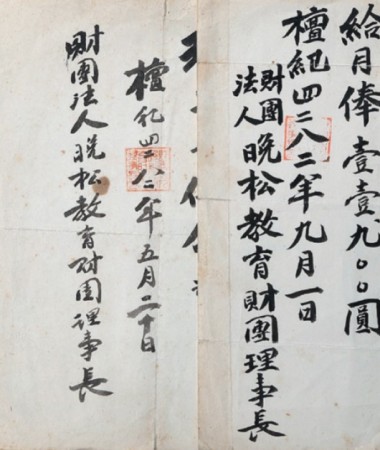 給月俸壹壹九〇〇圓
檀紀四二八二年九月一日
財團法人晩松教育財團理事長
檀紀四二八二年五月二十日
財團法人晩松教育財団理事長